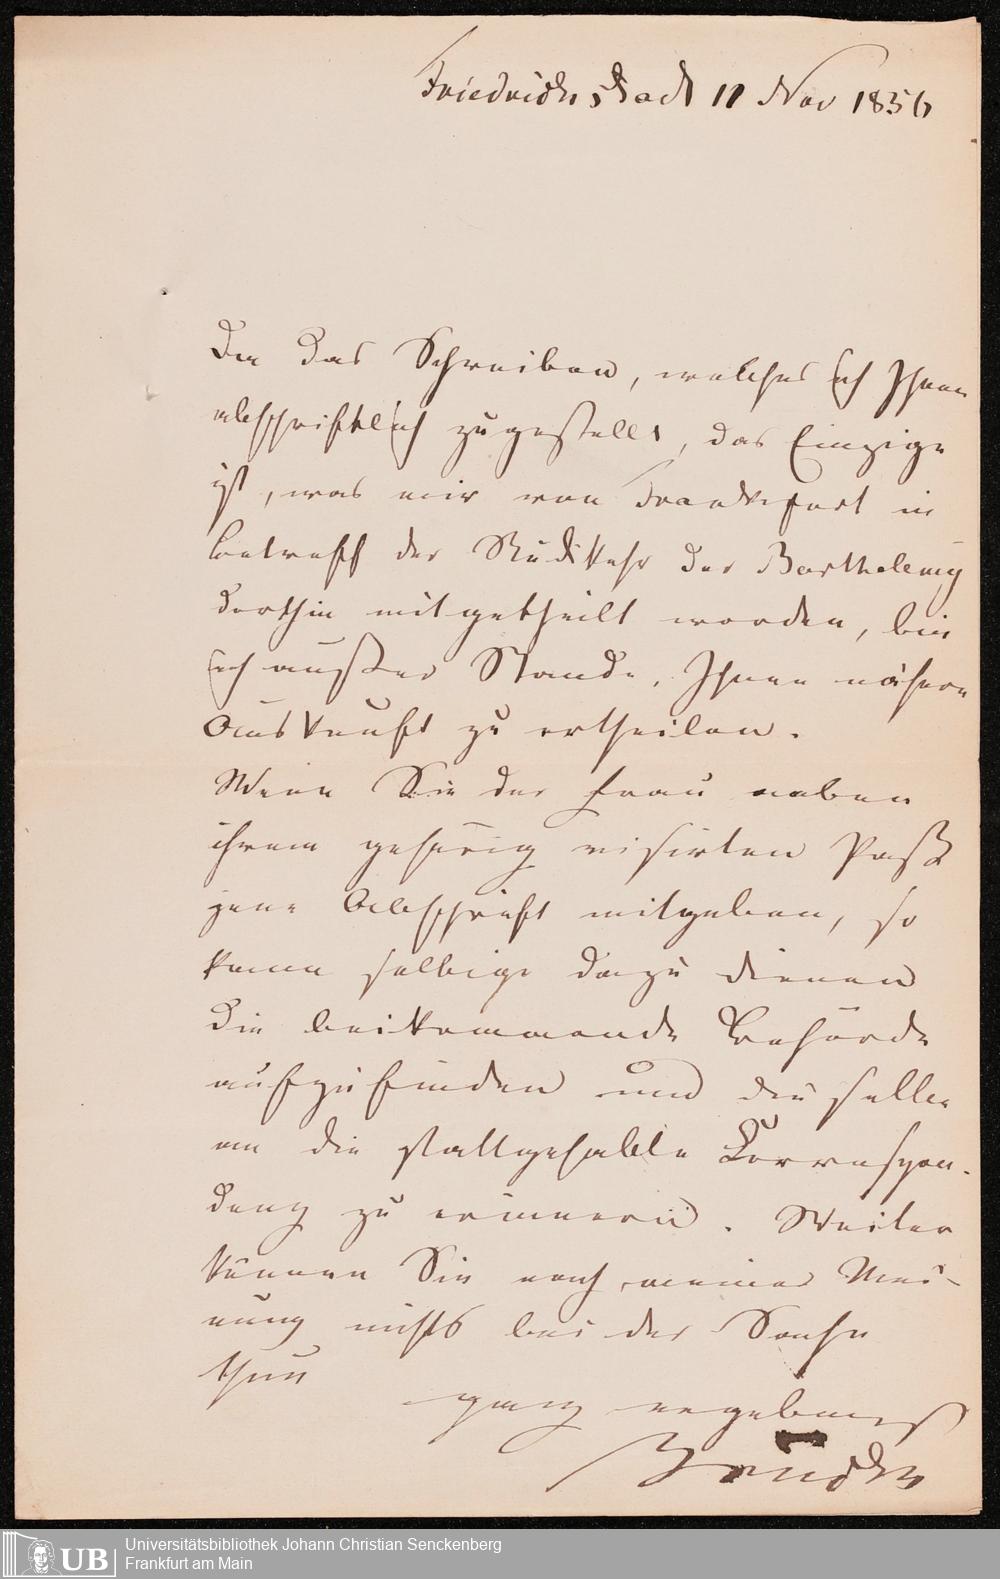 Friedrichsstadt 11 Nov 1856
Da das Schreiben, welches ich Ihnen
abschriftlich zugestellt, das Einzige
ist, was mir von Frankfurt in
Betreff der Rückkehr der
dorthin mitgetheilt worden, bin
ich außer Stande, Ihnen nähere
Auskunft zu ertheilen.
Wenn Sie der Frau neben
ihrem gehörig visirten Paß
jene Abschrift mitgeben, so
kann selbige dazu dienen
die beikommende Behörde
aufzufinden und dieselbe
an die stattgehabte Correspon-
denz zu erinnern. Weiter
können Sie nach meiner Mei-
nung nichts bei der Sache
thun
ganz ergebenst
UB
Universitätsbibliothek Johann Christian Senckenberg
Frankfurt am Main